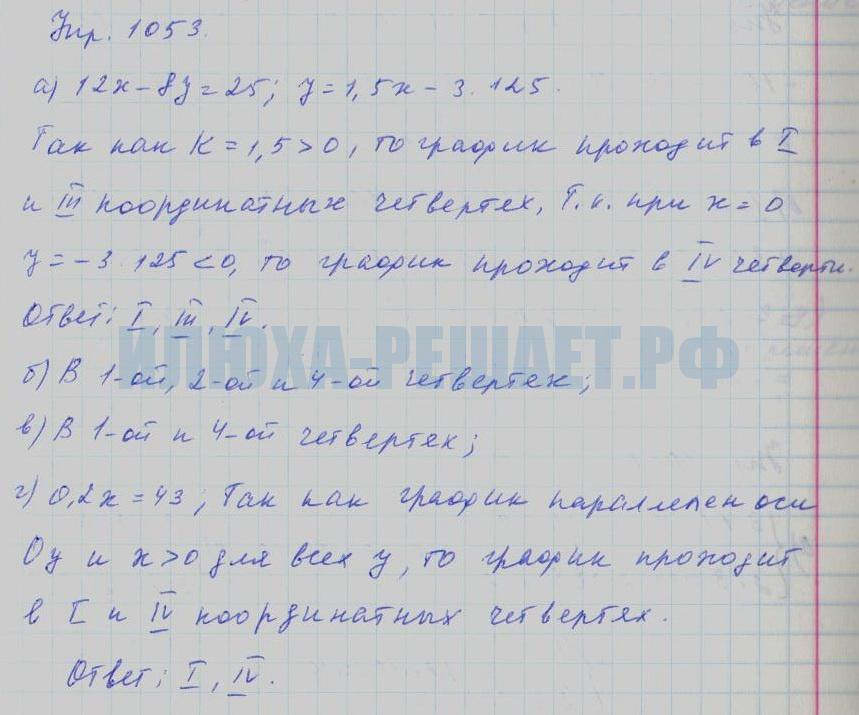 Упр. 1053.
а) 12x - 8y = 25; y = 1,5x - 3.125.
Так как K = 1,5 > 0, то график проходит в I
и III координатных четвертях, т.к. при x = 0
y = -3.125 < 0, то график проходит в IV четверти.
Ответ: I, III, IV.
ИЛЮХА-РЕШАЕТ.РФ
б) В 1-ой, 2-ой и 4-ой четвертях;
в) В 1-ой и 4-ой четвертях;
г) 0,2x = 43; Так как график параллелен оси
Oy и x > 0 для всех y, то график проходит
в I и IV координатных четвертях.
Ответ: I, IV.